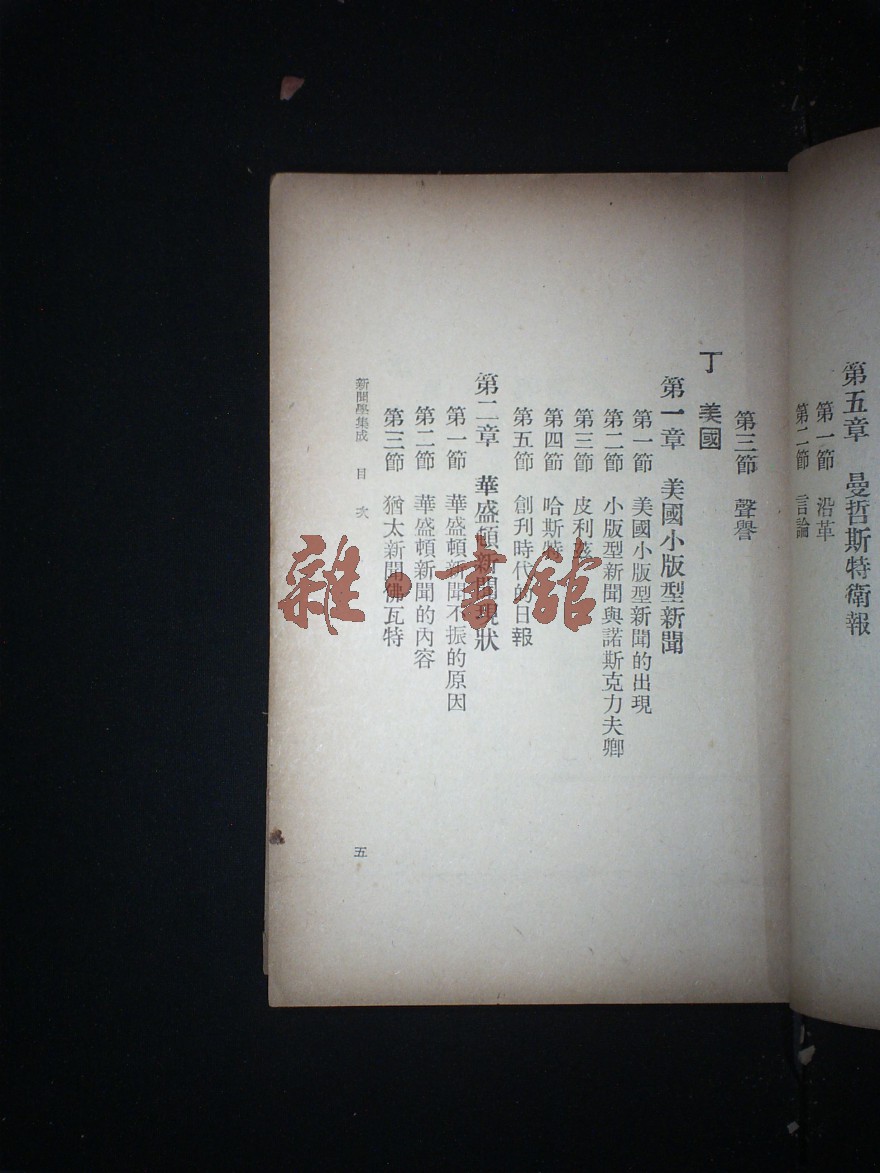 第五章 曼哲斯特衛報
第一節 沿革
第二節 言論
第三節 聲譽
丁 美國
第一章 美國小版型新聞
第一節 美國小版型新聞的出現
第二節 小版型新聞與諾斯克力夫卿
第三節 皮利
第四節 哈斯特
第五節 創刋時代的日報
第二章 華盛頓新聞現狀
第一節 華盛頓新聞不振的原因
第二節 華盛頓新聞的內容
第三節 猶太新聞佛瓦特
新聞學集成 目次
五
雜·書館